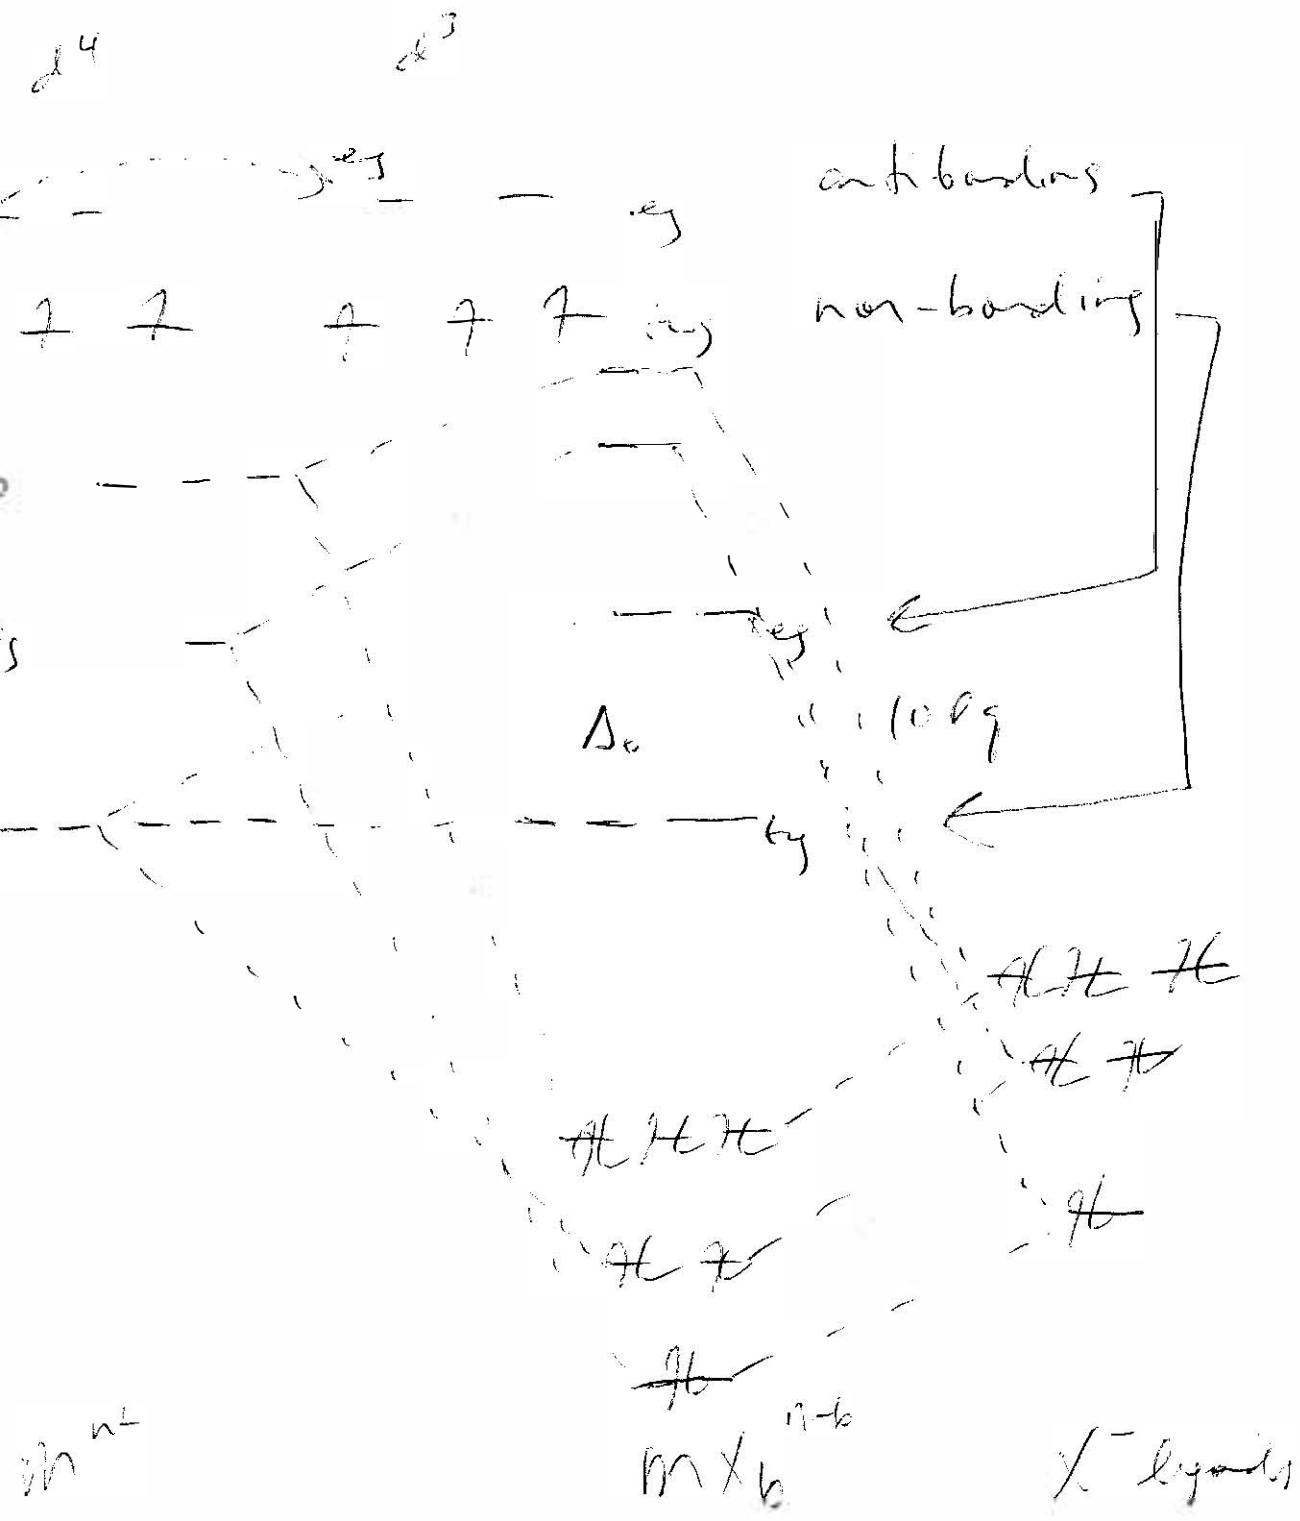 d⁴ d³
eg
eg antibonding
non-bonding
t₂g
p
s
eg
Δₒ 10Dq
t₂g
Mⁿ⁺ MX₆ⁿ⁻⁶ X⁻ ligands